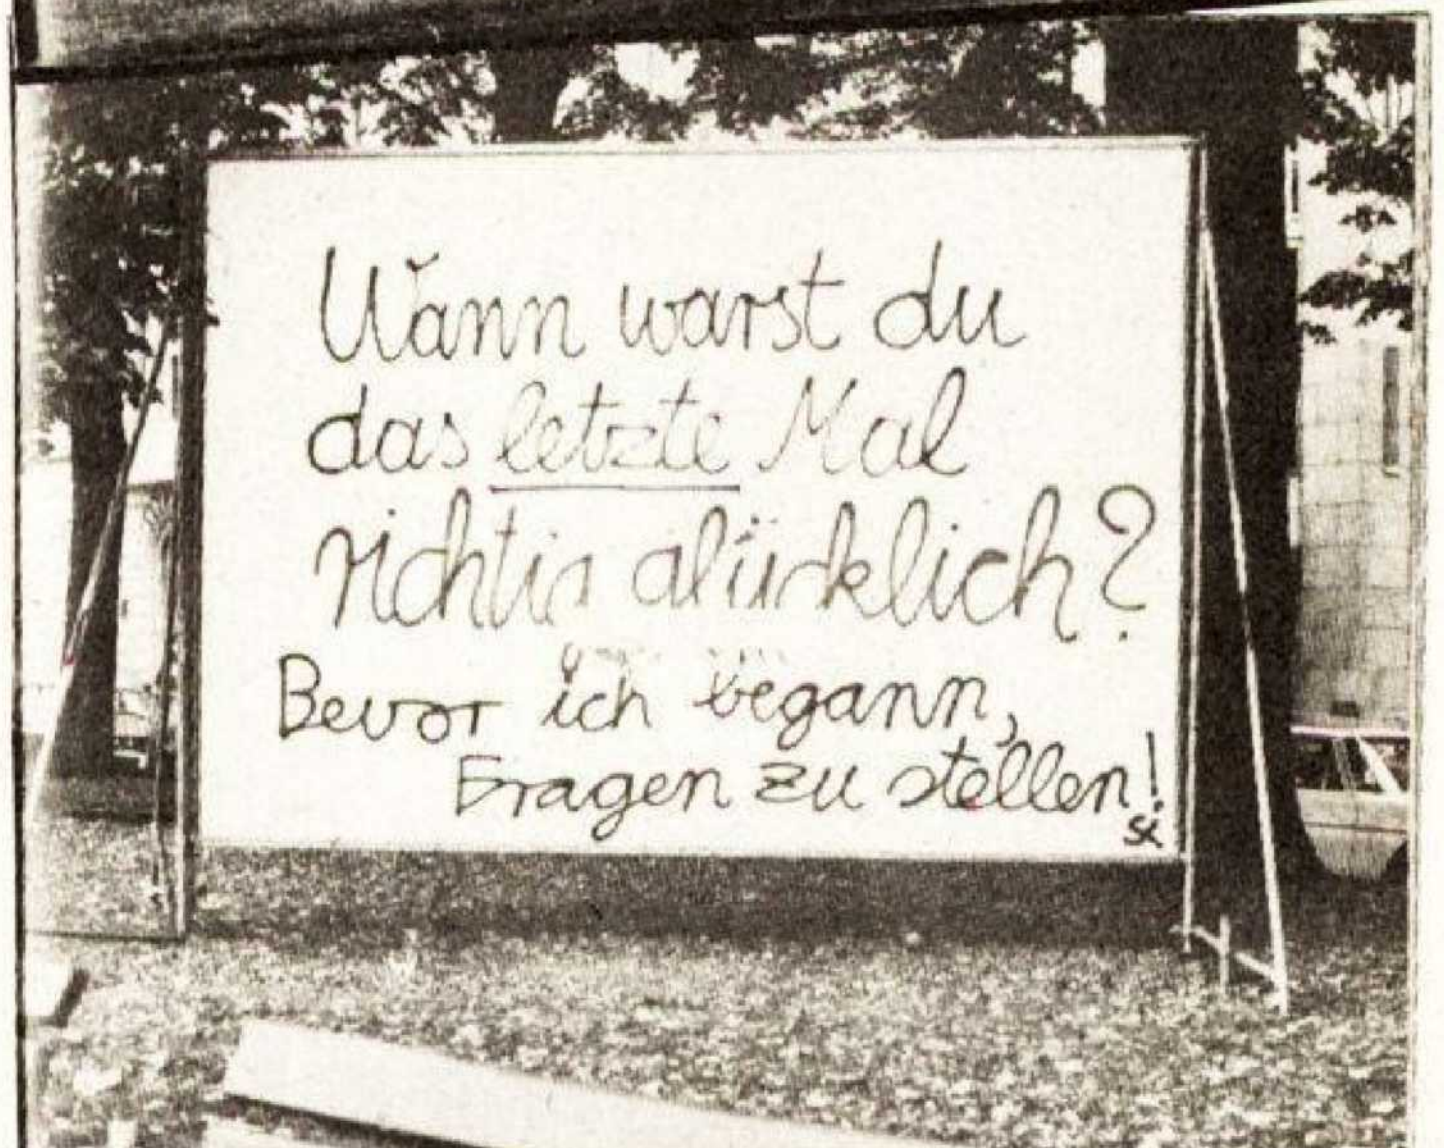 Wann warst du
das letzte Mal
richtig glücklich?
Bevor ich begann,
Fragen zu stellen!